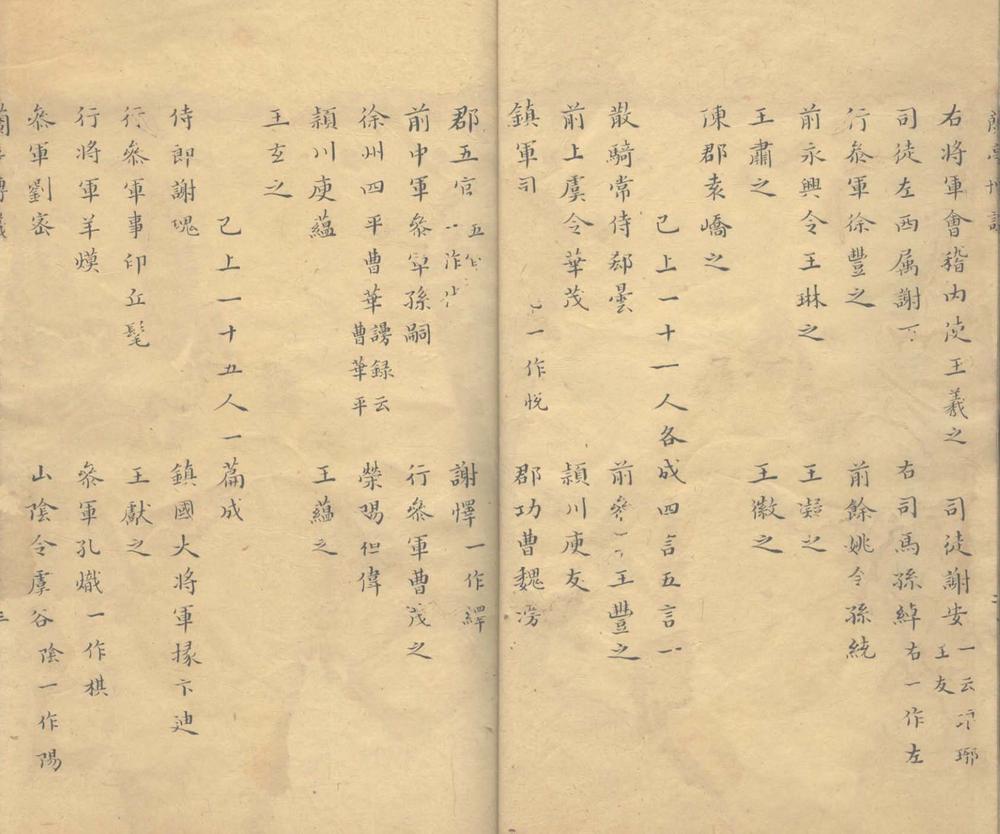 右將軍會稽內史王羲之　司徒謝安一云瑯琊王友
司徒左西属謝　右司馬孫綽右一作左
行叅軍徐豐之　前餘姚令孫統
前永興令王琳之　王凝之
王肅之　王徽之
陳郡袁嶠之
已上一十一人各成四言五言一
散騎常侍郄曇　前叅　王豐之
前上虞令華茂　潁川庾友
鎮軍司　一作悅　郡功曹魏滂
郡五官　一作　謝懌一作繹
前中軍叅軍孫嗣　行叅軍曹茂之
徐州西平曹華謾録云曹華平　滎陽桓偉
潁川庾蘊　王蘊之
王玄之
已上一十五人一篇成
侍郎謝瑰　鎮國大將軍掾卞迪
行叅軍事印丘髦　王獻之
行將軍羊煐　叅軍孔熾一作棋
叅軍劉密　山陰令虞谷陰一作陽